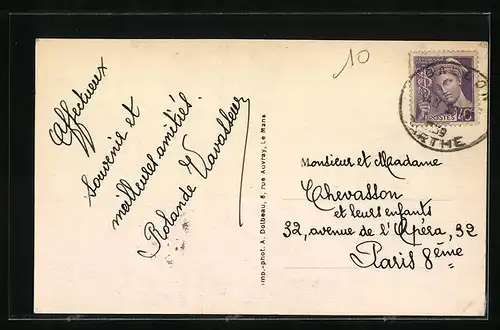 10
Affectueux
souvenir et
meilleures amitiés.
Rolande Vavasseur
Imp.-phot. A. Dolbeau, 6, rue Auvray, Le Mans
POSTES
40c
Monsieur et Madame
Chevasson
et leurs enfants
32, avenue de l'Opéra, 32
Paris 8ème